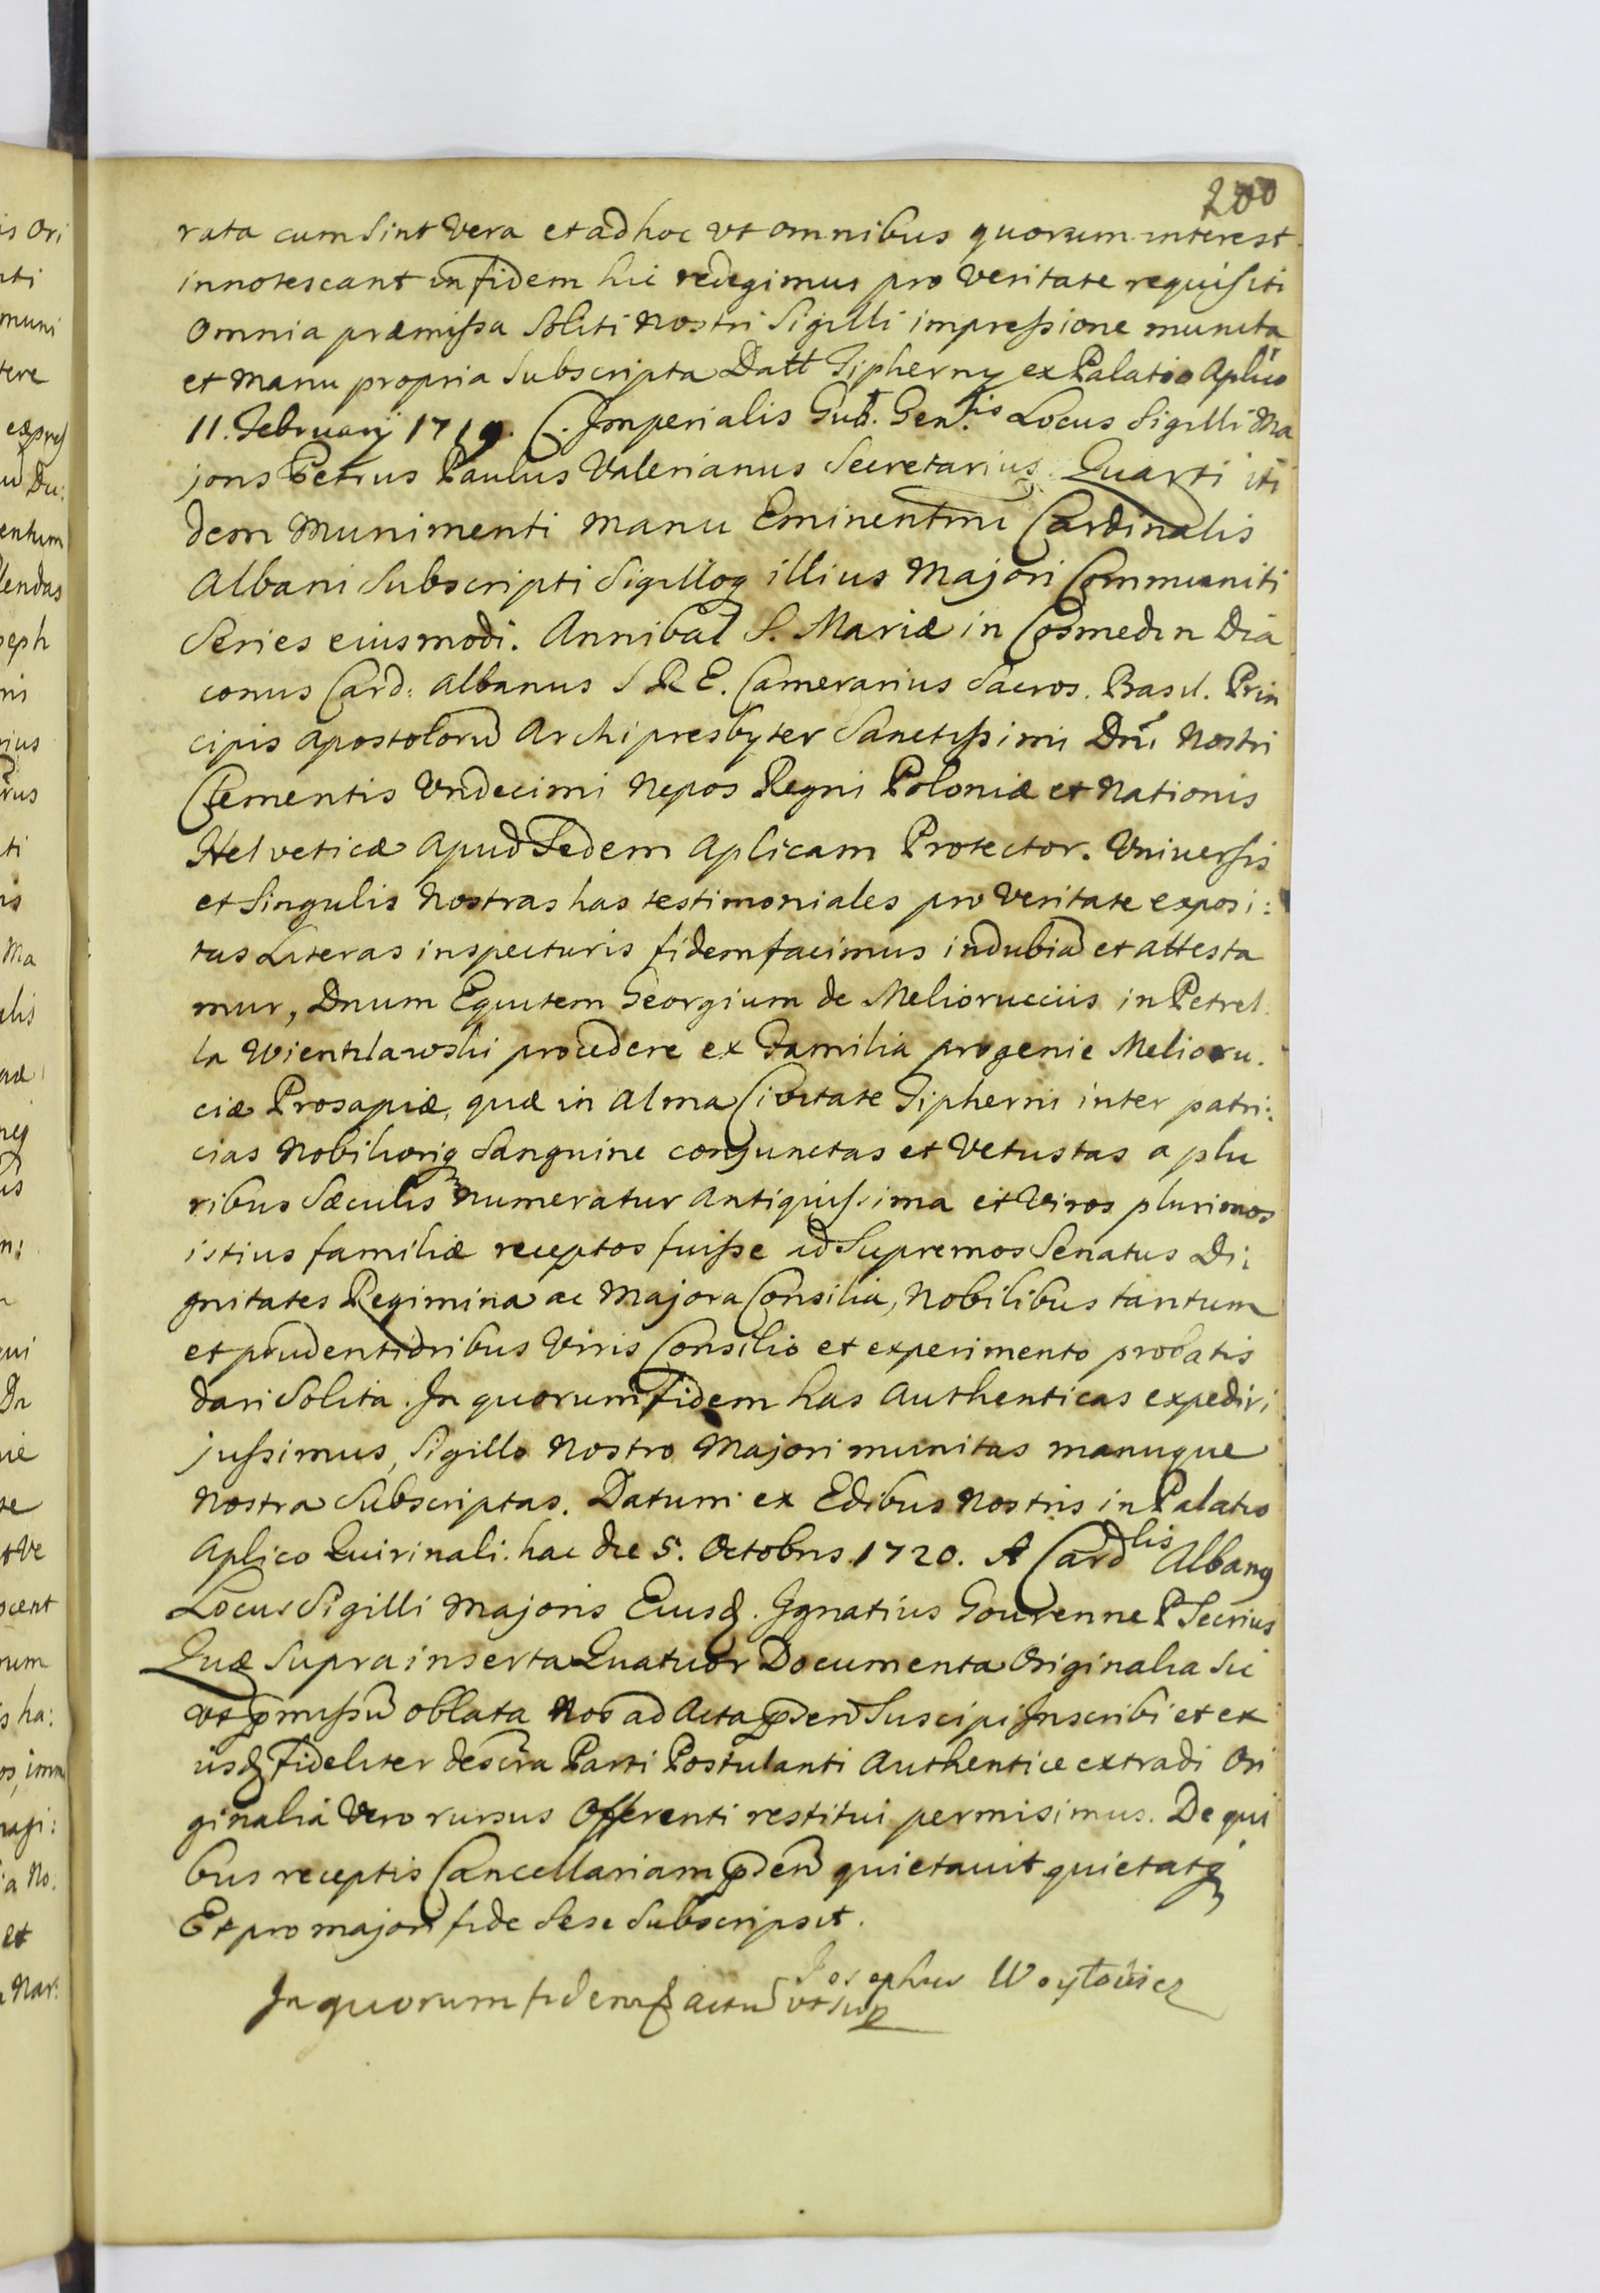 200
rata cum sint Vera et ad hoc vt omnibus quorum interest
innotescant in fidem hic redegimus pro Veritate requisiti
Omnia præmissa soliti Nostri Sigilli impressione munita
et Manu propria Subscripta Datt Tipherny ex Palatio Aplico
11. Februarij 1719. C. Imperialis Gub. Gen.lis Locus Sigilli Ma
joris Petrus Paulus Valerianus Secretarius. Quarti iti
dem Munimenti manu Eminentmi Cardinalis
Albani Subscripti Sigilloq illius Majori Communiti
Series eiusmodi. Annibal S. Mariæ in Cosmedin Dia
conus Card: Albanus S R E. Camerarius Sacros. Basil. Prin
cipis Apostolorũ Archipresbyter Sanctissimi Dñi Nostri
Clementis Vndecimi Nepos Regni Poloniæ et Nationis
Helveticæ Apud Sedem Aplicam Protector. Universis
et Singulis Nostras has testimoniales pro Veritate exposi:
tas Literas inspecturis fidem facimus indubiã et attesta
mur, Dnum Equitem Georgium de Meliorucciis in Petrel
la Wientzlawski procedere ex Familia progenie Melioru.
ciæ Prosapiæ, quæ in Alma Civitate Tipherni inter patri:
cias Nobiliorig Sanguine conjunctas et Vetustas a plu
ribus Sæculis numeratur Antiquissima et Viros plurimos
istius familiæ receptos fuisse ad Supremos Senatus Di:
gnitates Regimina ac Majora Consilia, Nobilibus tantum
et prudentioribus Viris Consilio et experimento probatis
dari Solita. In quorum Fidem has Authenticas expediri
jussimus, Sigillo Nostro Majori munitas manuque
Nostra Subscriptas. Datum ex Edibus Nostris in Palatio
Aplico Quirinali. hac die 5. Octobris 1720. A Cardlis Albanq
Locus Sigilli Majoris Eiusq. Ignatius Gourenne P Secrius
Quæ Supra inserta Quatuor Documenta Originalia Sic
vt pmissũ oblata Nos ad Acta pñdem Suscipi Inscribi et ex
iisq Fideliter descra Parti Postulanti Authentice extradi Ori
ginalia Vero rursus Offerenti restitui permisimus. De qui
bus receptis Cancellariam pñdem quietavit quietatq
Et pro majori fide Sese Subscripsit.
Josephus Woytowicz
In quorum fidem actũ vt sup